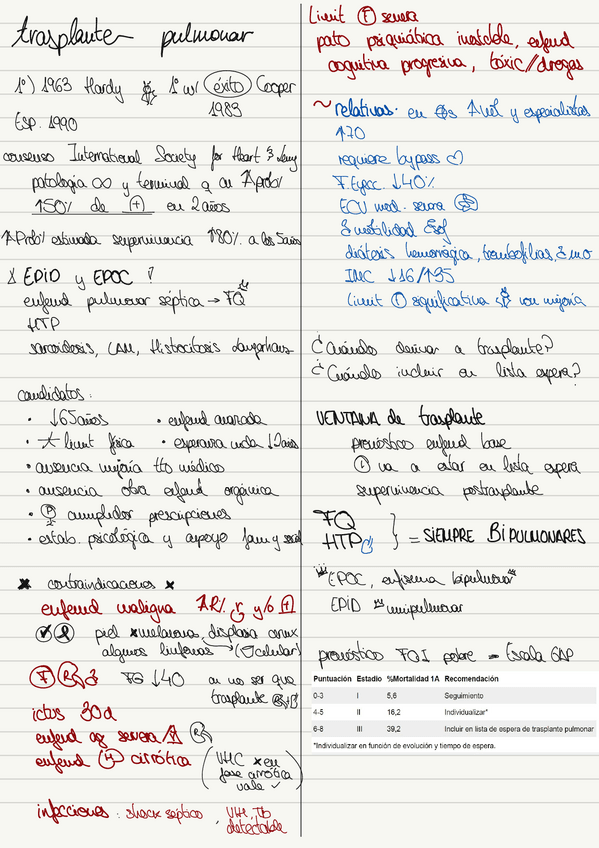 trasplante pulmonar
1º) 1963 Hardy 1º w/ éxito Cooper
1983
Esp. 1990
consenso International Society for Heart & Lung
patología ∞ y terminal q en ↑Prob/
↑50% de (+) en 2 años
↑Prob/ estimada supervivencia ↑80% a los 5 años
EPID y EPOC !
enfermd pulmonar séptica → FQ
HTP
sarcoidosis, LAM, Histiocitosis Langerhans
candidatos:
• ↓65 años
• enfermd avanzada
• limit física
• esperanza vida ↓2 años
• ausencia mejoría tto médico
• ausencia otra enfermd orgánica
• cumplidor prescripciones
• estab. psicológica y apoyo fam y social
contraindicaciones
enfermd maligna ↑R/. y/o (+)
piel *melanoma, displasia cervix
algunos linfomas (Ocelular)
FG ↓40 a no ser que
trasplante
ictus 30d
enfermd ag severa
enfermd (H) cirrótica
(VHC * en
fase cirrótica
vale ✓)
infecciones: shock séptico, VHH, Tb
detectable
Limit (F) severa
pato psiquiátrica inestable, enfermd
cognitiva progresiva, tóxic/drogas
~ relativas. en Aniv y especialistas
↑70
requiere bypass ♡
F. Eyec. ↓40%
ECU med. severa
motilidad Esof
diátesis hemorrágica, trombofilias, & mo
IMC ↓16/↑35
limit (F) significativa con mejoría
¿Cuándo derivar a trasplante?
¿Cuándo incluir en lista espera?
VENTANA de trasplante
pronóstico enfermd base
va a estar en lista espera
supervivencia postrasplante
FQ
HTP } = SIEMPRE BIPULMONARES
EPOC, enfisema bipulmonar
EPID unipulmonar
pronóstico FQI pobre = Escala GAP
Puntuación Estadio %Mortalidad 1A Recomendación
0-3 I 5,6 Seguimiento
4-5 II 16,2 Individualizar*
6-8 III 39,2 Incluir en lista de espera de trasplante pulmonar
*Individualizar en función de evolución y tiempo de espera.